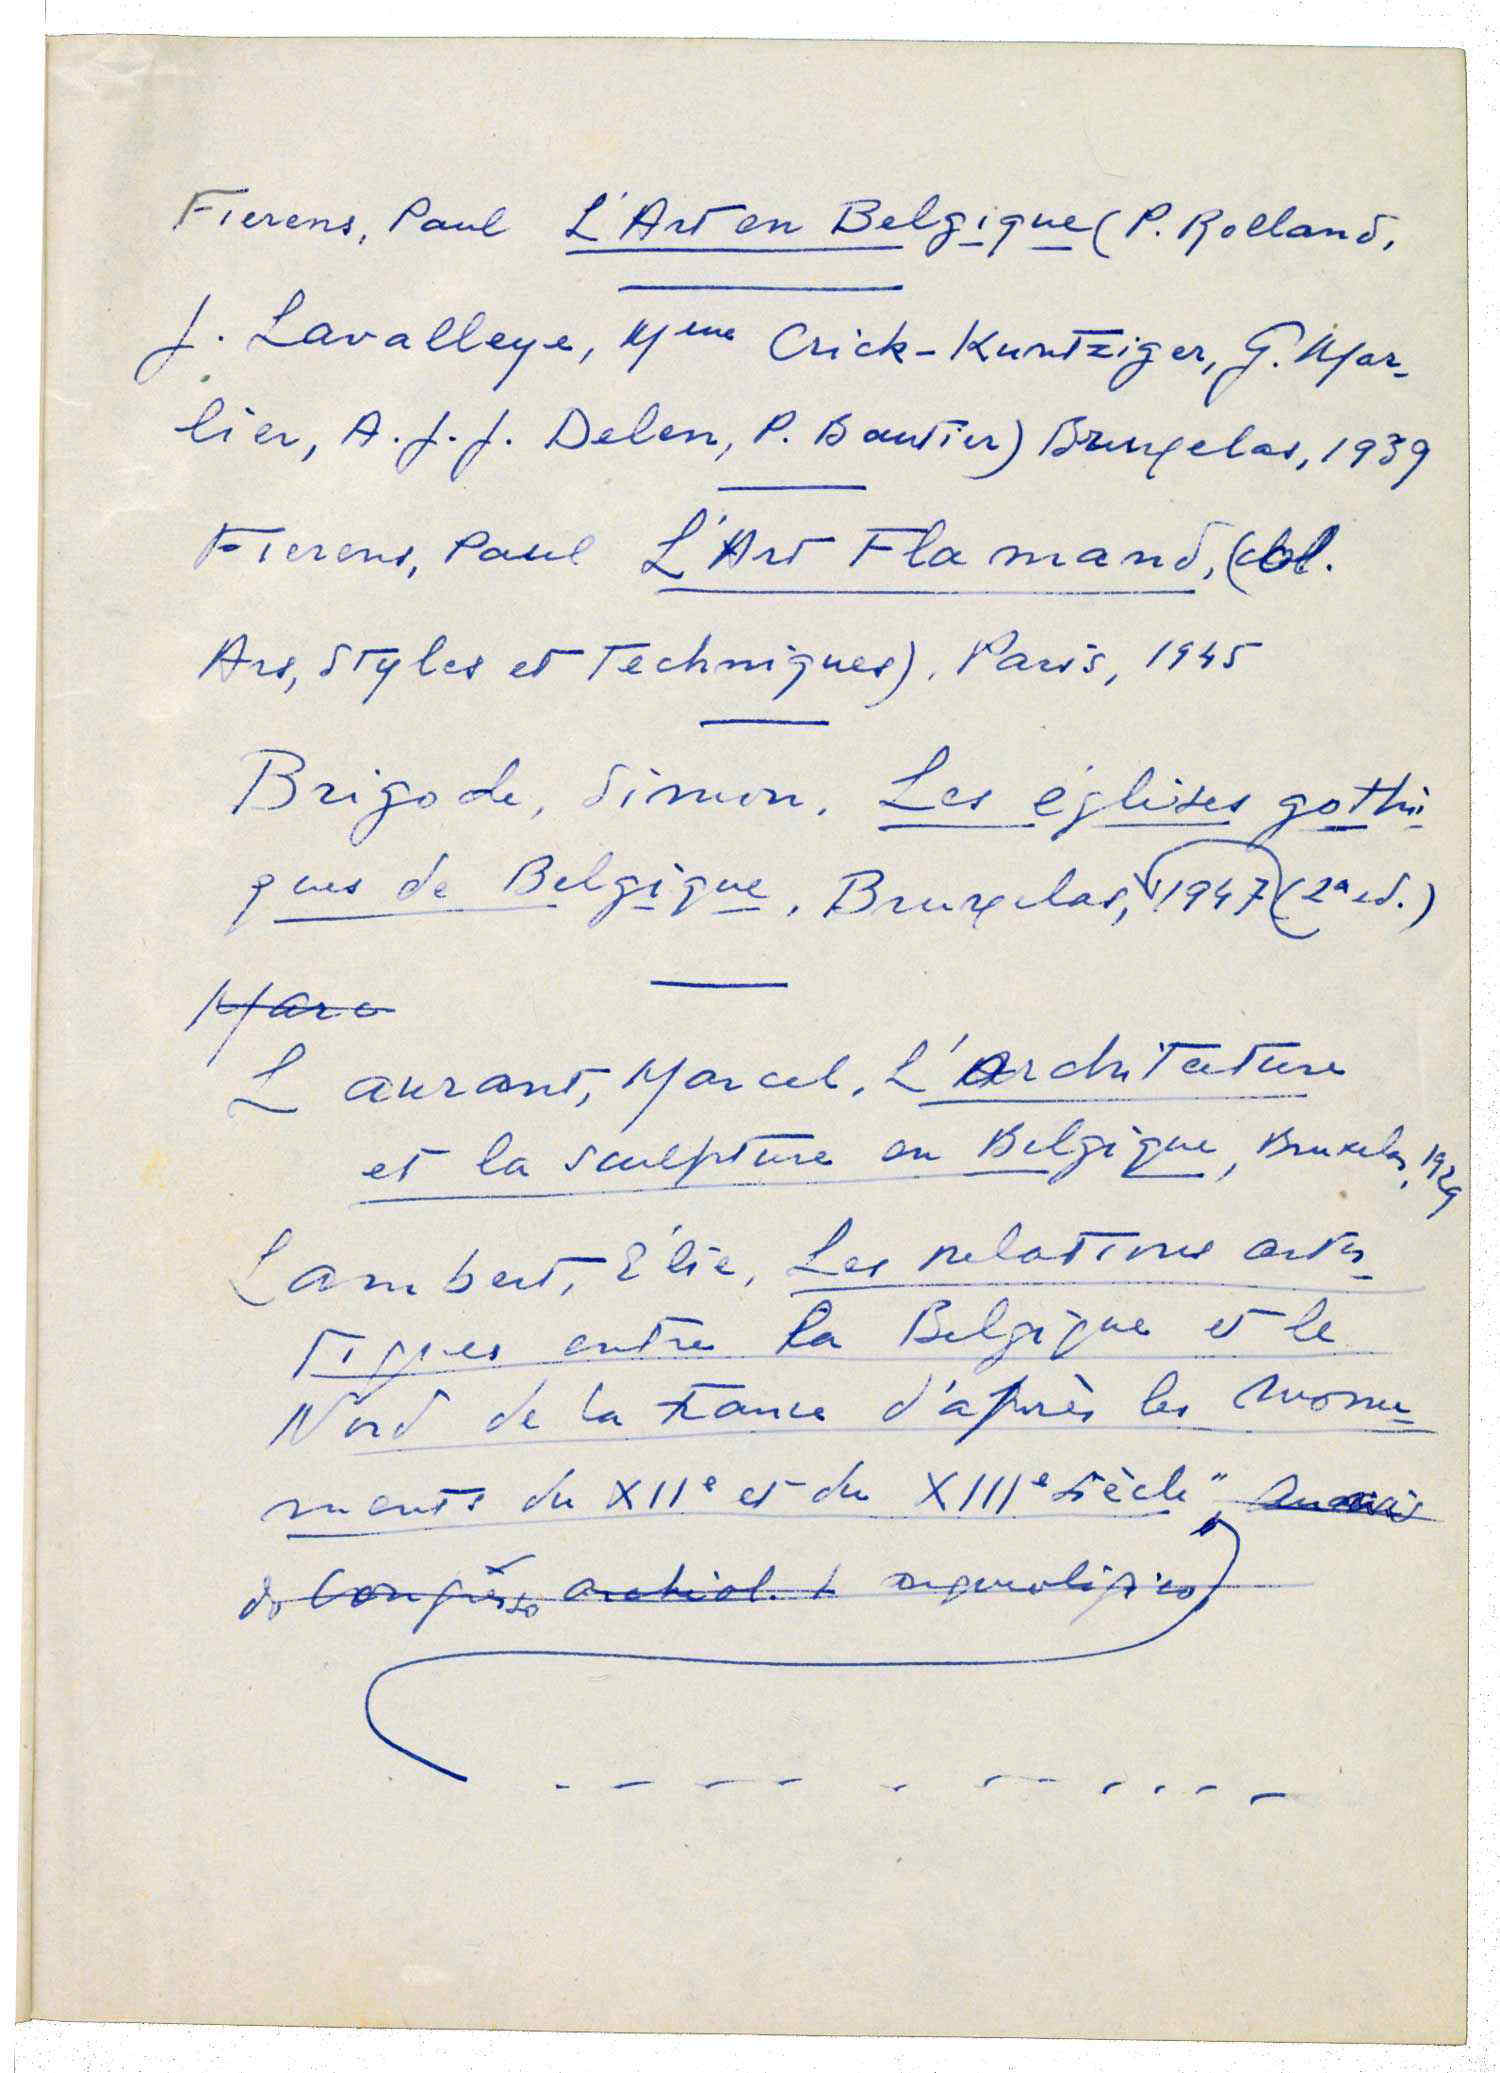 Fierens, Paul L'Art en Belgique (P. Rolland,
J. Lavalleye, Mme Crick-Kuntziger, G. Mar-
lier, A. J. J. Delen, P. Bautier) Bruxelas, 1939
Fierens, Paul L'Art Flamand, (col.
Ars, Styles et Techniques). Paris, 1945
Brigode, Simon. Les églises gothi
ques de Belgique, Bruxelas, 1947 (2ª ed.)
Marc
Laurant, Marcel. L'Architeture
et la sculpture en Belgique, Bruxelas, 1929
Lambert, Élie, Les relations artis
tiques entre la Belgique et le
Nord de la France d'après les monu-
ments du XIIe et du XIIIe siècle",
do Congrèsso archéol.